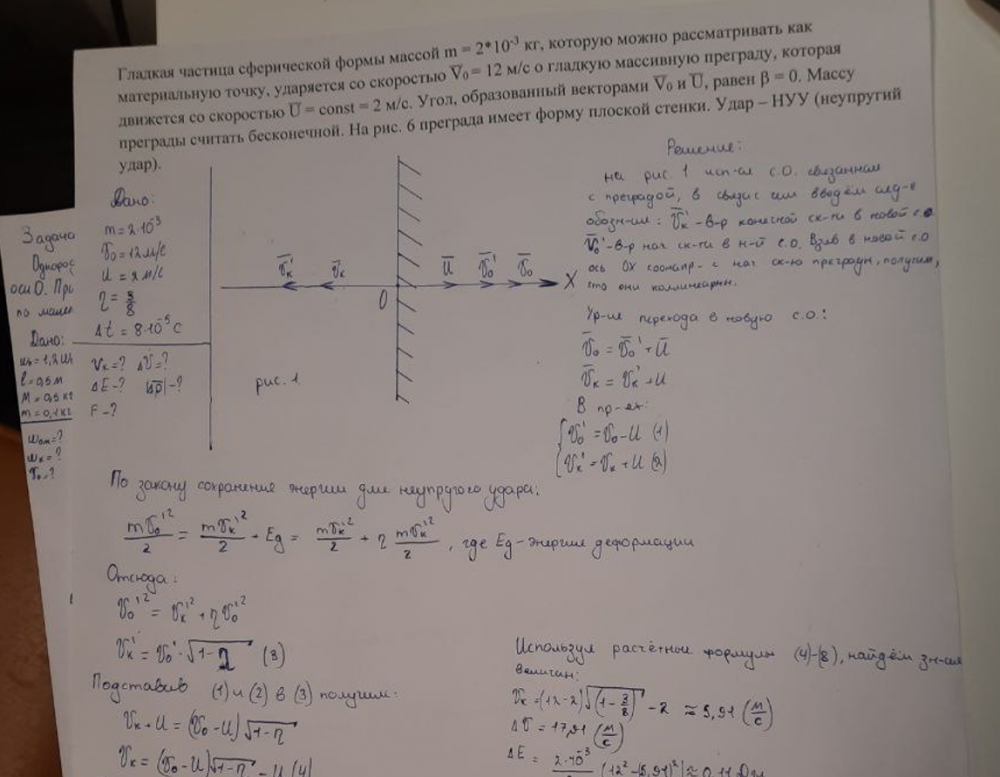 Гладкая частица сферической формы массой m = 2*10⁻³ кг, которую можно рассматривать как
материальную точку, ударяется со скоростью V̅₀ = 12 м/с о гладкую массивную преграду, которая
движется со скоростью U̅ = const = 2 м/с. Угол, образованный векторами V̅₀ и U̅, равен β = 0. Массу
преграды считать бесконечной. На рис. 6 преграда имеет форму плоской стенки. Удар – НУУ (неупругий
удар).
Дано:
m = 2·10⁻³
υ₀ = 12 м/с
U = 2 м/с
η = 3/8
Δt = 8·10⁻⁵ c
Vк = ? ΔV = ?
ΔE - ? |Δp̅| - ?
F - ?
Задача
Однород
оси О. Пр
по
Дано:
l = 0,5 м
M = 0,5 кг
m = 0,1 кг
ωк = ?
υ₀ = ?
υ̅к' υ̅к U̅ υ̅₀' υ̅₀
O X
рис. 1
Решение:
на рис. 1 исп-ая с.О. связанная
с преградой, в связи с чем введём след-е
обозн-ия: υ̅к' - в-р конечной ск-ти в новой с.о.
υ̅₀' - в-р нач ск-ти в н-й с.о. Взяв в новой с.о
ось OX сонапр- с нач ск-ю преграды, получим,
что они коллинеарны.
Ур-ие перехода в новую с.о.:
υ̅₀ = υ̅₀' + U̅
υ̅к = υ̅к' + U
В пр-ях:
{ υ₀' = υ₀ - U (1)
{ υк' = υк + U (2)
По закону сохранения энергии для неупругого удара:
mυ₀'²/2 = mυк'²/2 + Eд = mυк'²/2 + η mυк'²/2 , где Eд - энергия деформации
Отсюда:
υ₀'² = υк'² + ηυ₀'²
υк' = υ₀' · √(1-η) (3)
Подставив (1) и (2) в (3) получим:
υк + U = (υ₀ - U)√(1-η)
υк = (υ₀ - U)√(1-η) - U (4)
Используя расчётные формулы (4)-(8), найдём зн-ия
величин:
υк = (12-2)√(1-3/8) - 2 ≈ 5,91 (м/с)
Δυ = 17,91 (м/с)
ΔE = 2·10⁻³ |12² - (5,91)²| ≈ 0,11 Дж